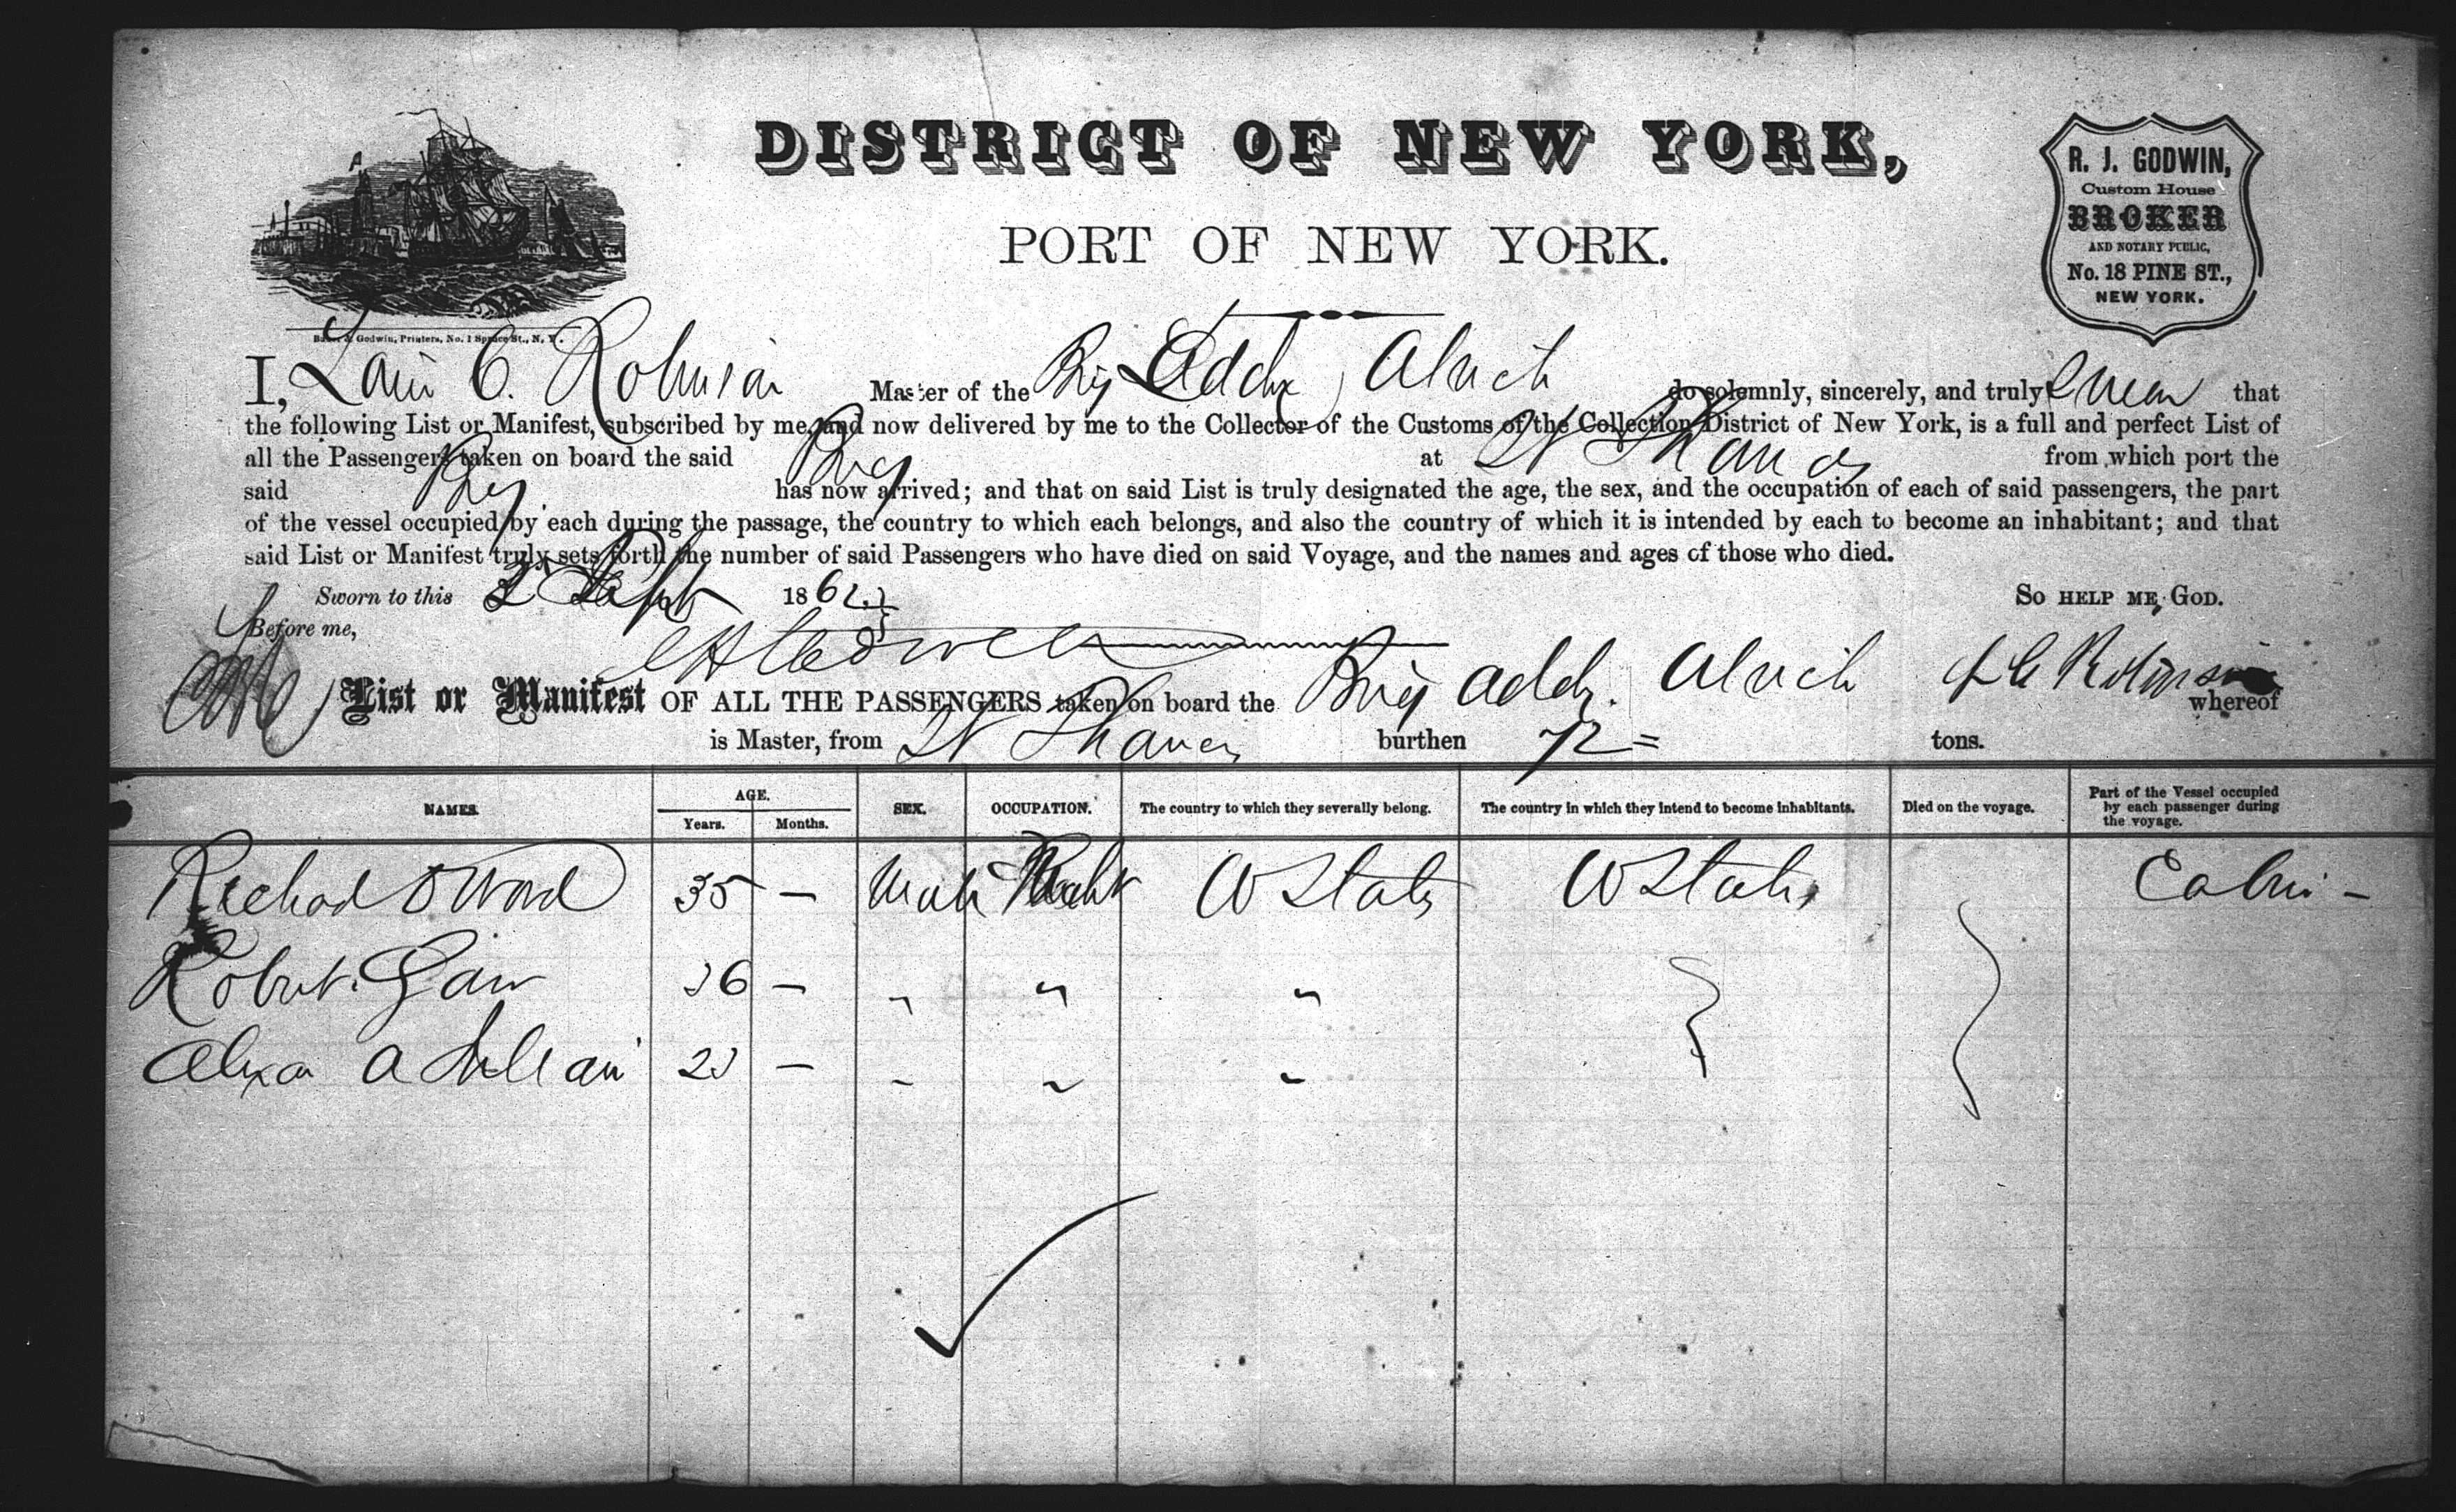 DISTRICT OF NEW YORK,
PORT OF NEW YORK.
R. J. GODWIN,
Custom House
BROKER
AND NOTARY PUBLIC,
No. 18 PINE ST.,
NEW YORK.
Baker & Godwin, Printers, No. 1 Spruce St., N. Y.
I, C. Robinson Master of the Brig Addy do solemnly, sincerely, and truly swear that
the following List or Manifest, subscribed by me, and now delivered by me to the Collector of the Customs of the Collection District of New York, is a full and perfect List of
all the Passengers taken on board the said Brig at St Thomas from which port the
said Brig has now arrived; and that on said List is truly designated the age, the sex, and the occupation of each of said passengers, the part
of the vessel occupied by each during the passage, the country to which each belongs, and also the country of which it is intended by each to become an inhabitant; and that
said List or Manifest truly sets forth the number of said Passengers who have died on said Voyage, and the names and ages of those who died.
Sworn to this 2 Sept 1862. So HELP ME GOD.
Before me,
List or Manifest OF ALL THE PASSENGERS taken on board the Brig Addy. C Robinson whereof
is Master, from St Thomas burthen 72 = tons.
NAMES. AGE. Years. Months. SEX. OCCUPATION. The country to which they severally belong. The country in which they intend to become inhabitants. Died on the voyage. Part of the Vessel occupied by each passenger during the voyage.
35 — Male U States U States Cabin —
Robert 36 — " " "
Alexa A 23 — " " "